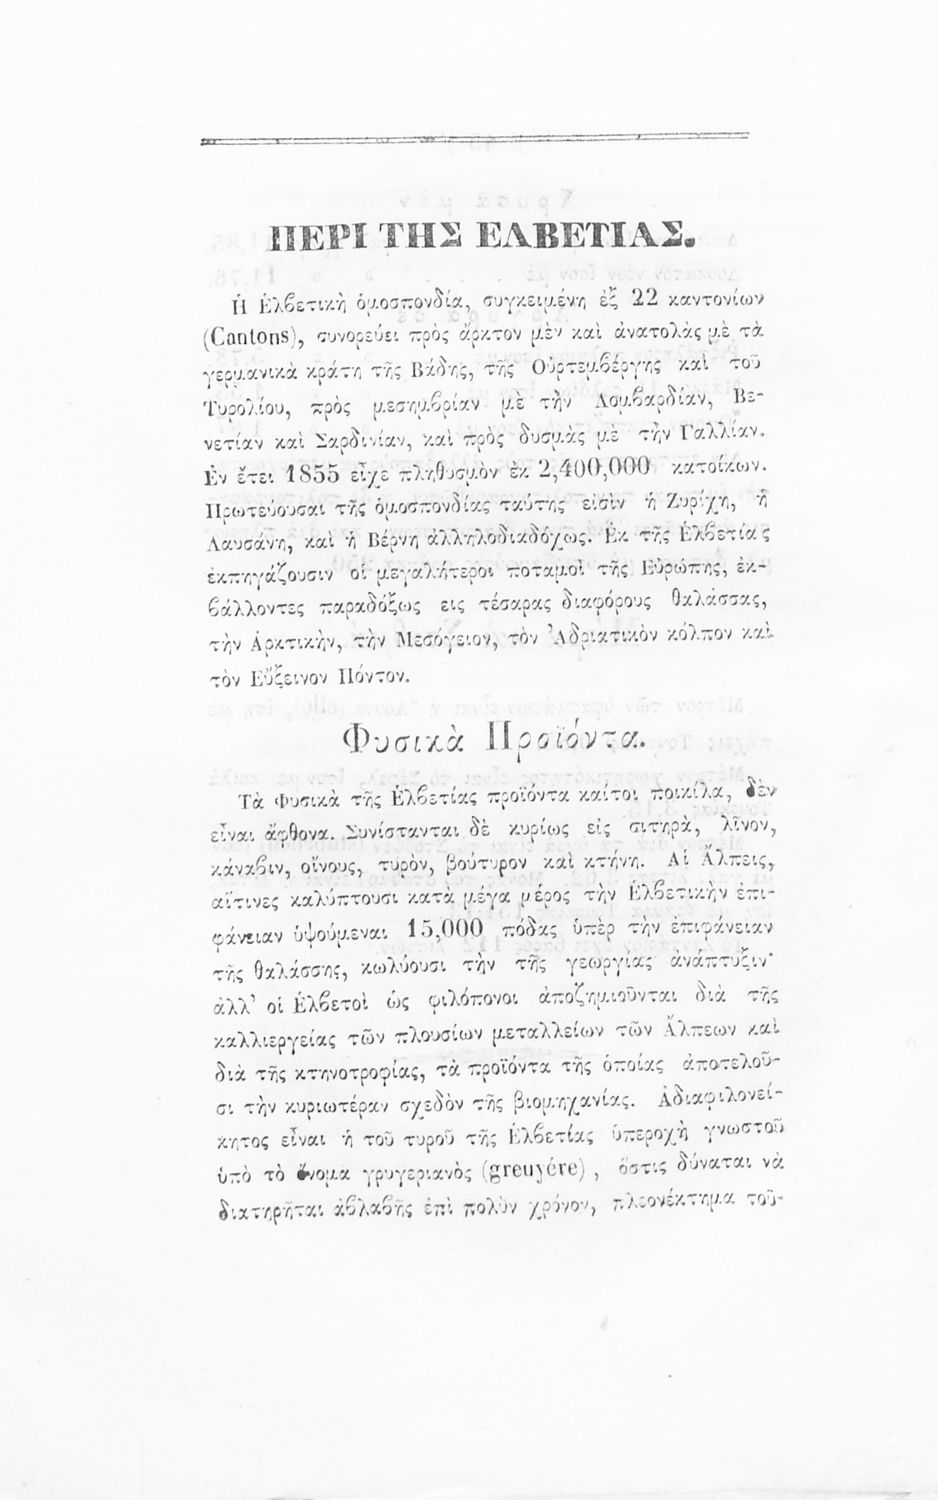 ΠΕΡΙ ΤΗΣ ΕΛΒΕΤΙΑΣ.
Ἡ Ἑλβετικὴ ὁμοσπονδία, συγκειμένη ἐξ 22 καντονίων
(Cantons), συνορεύει πρὸς ἄρκτον μὲν καὶ ἀνατολὰς μὲ τὰ
γερμανικὰ κράτη τῆς Βάδης, τῆς Οὐρτεμβέργης καὶ τοῦ
Τυρολίου, πρὸς μεσημβρίαν μὲ τὴν Λομβαρδίαν, Βε-
νετίαν καὶ Σαρδινίαν, καὶ πρὸς δυσμὰς μὲ τὴν Γαλλίαν.
Ἐν ἔτει 1855 εἶχε πληθυσμὸν ἐκ 2,400,000 κατοίκων.
Πρωτεύουσαι τῆς ὁμοσπονδίας ταύτης εἰσὶν ἡ Ζυρίχη, ἡ
Λαυσάνη, καὶ ἡ Βέρνη ἀλληλοδιαδόχως. Ἐκ τῆς Ἑλβετίας
ἐκπηγάζουσιν οἱ μεγαλήτεροι ποταμοὶ τῆς Εὐρώπης, ἐκ-
βάλλοντες παραδόξως εις τέσαρας διαφόρους θαλάσσας,
τὴν Ἀρκτικὴν, τὴν Μεσόγειον, τὸν Ἀδριατικὸν κόλπον καὶ
τὸν Εὔξεινον Πόντον.
Φυσικὰ Προϊόντα.
Τὰ Φυσικὰ τῆς Ἑλβετίας προϊόντα καίτοι ποικίλα, δὲν
εἶναι ἄφθονα. Συνίστανται δὲ κυρίως εἰς σιτηρὰ, λῖνον,
κάναβιν, οἴνους, τυρὸν, βούτυρον καὶ κτήνη. Αἱ Ἄλπεις,
αἵτινες καλύπτουσι κατὰ μέγα μέρος τὴν Ἑλβετικὴν ἐπι-
φάνειαν ὑψούμεναι 15,000 πόδας ὑπὲρ τὴν ἐπιφάνειαν
τῆς θαλάσσης, κωλύουσι τὴν τῆς γεωργίας ἀνάπτυξιν·
ἀλλ' οἱ Ἑλβετοὶ ὡς φιλόπονοι ἀποζημιοῦνται διὰ τῆς
καλλιεργείας τῶν πλουσίων μεταλλείων τῶν Ἄλπεων καὶ
διὰ τῆς κτηνοτροφίας, τὰ προϊόντα τῆς ὁποίας ἀποτελοῦ-
σι τὴν κυριωτέραν σχεδὸν τῆς βιομηχανίας. Ἀδιαφιλονεί-
κητος εἶναι ἡ τοῦ τυροῦ τῆς Ἑλβετίας ὑπεροχὴ γνωστοῦ
ὑπὸ τὸ ὄνομα γρυγεριανὸς (greuyére), ὅστις δύναται νὰ
διατηρῆται ἀβλαβὴς ἐπὶ πολὺν χρόνον, πλεονέκτημα τοῦ-